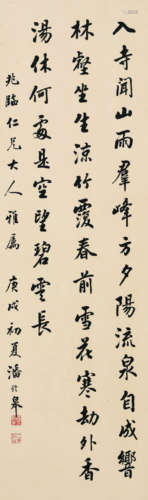 入寺聞山雨羣峰方夕陽流泉自成響
林壑坐生涼竹覆春前雪花寒劫外香
湯休何處是空望碧雲長
兆臨仁兄大人雅屬 庚戌初夏潘齡皋